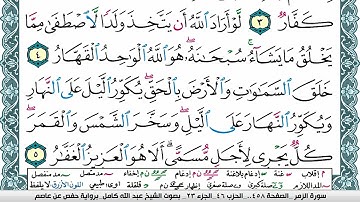 كَفَّارٌ ﴿٣﴾ لَّوْ أَرَادَ ٱللَّهُ أَن يَتَّخِذَ وَلَدًا لَّٱصْطَفَىٰ مِمَّا
يَخْلُقُ مَا يَشَآءُ ۚ سُبْحَٰنَهُۥ ۖ هُوَ ٱللَّهُ ٱلْوَٰحِدُ ٱلْقَهَّارُ ﴿٤﴾
خَلَقَ ٱلسَّمَٰوَٰتِ وَٱلْأَرْضَ بِٱلْحَقِّ ۖ يُكَوِّرُ ٱلَّيْلَ عَلَى ٱلنَّهَارِ
وَيُكَوِّرُ ٱلنَّهَارَ عَلَى ٱلَّيْلِ ۖ وَسَخَّرَ ٱلشَّمْسَ وَٱلْقَمَرَ ۖ
كُلٌّ يَجْرِى لِأَجَلٍ مُّسَمًّى ۗ أَلَا هُوَ ٱلْعَزِيزُ ٱلْغَفَّٰرُ ﴿٥﴾
سورة الزمر - الصفحة ٤٥٨ .. الحزب ٤٦ .. الجزء ٢٣ .. بصوت الشيخ عبد الله كامل .. برواية حفص عن عاصم